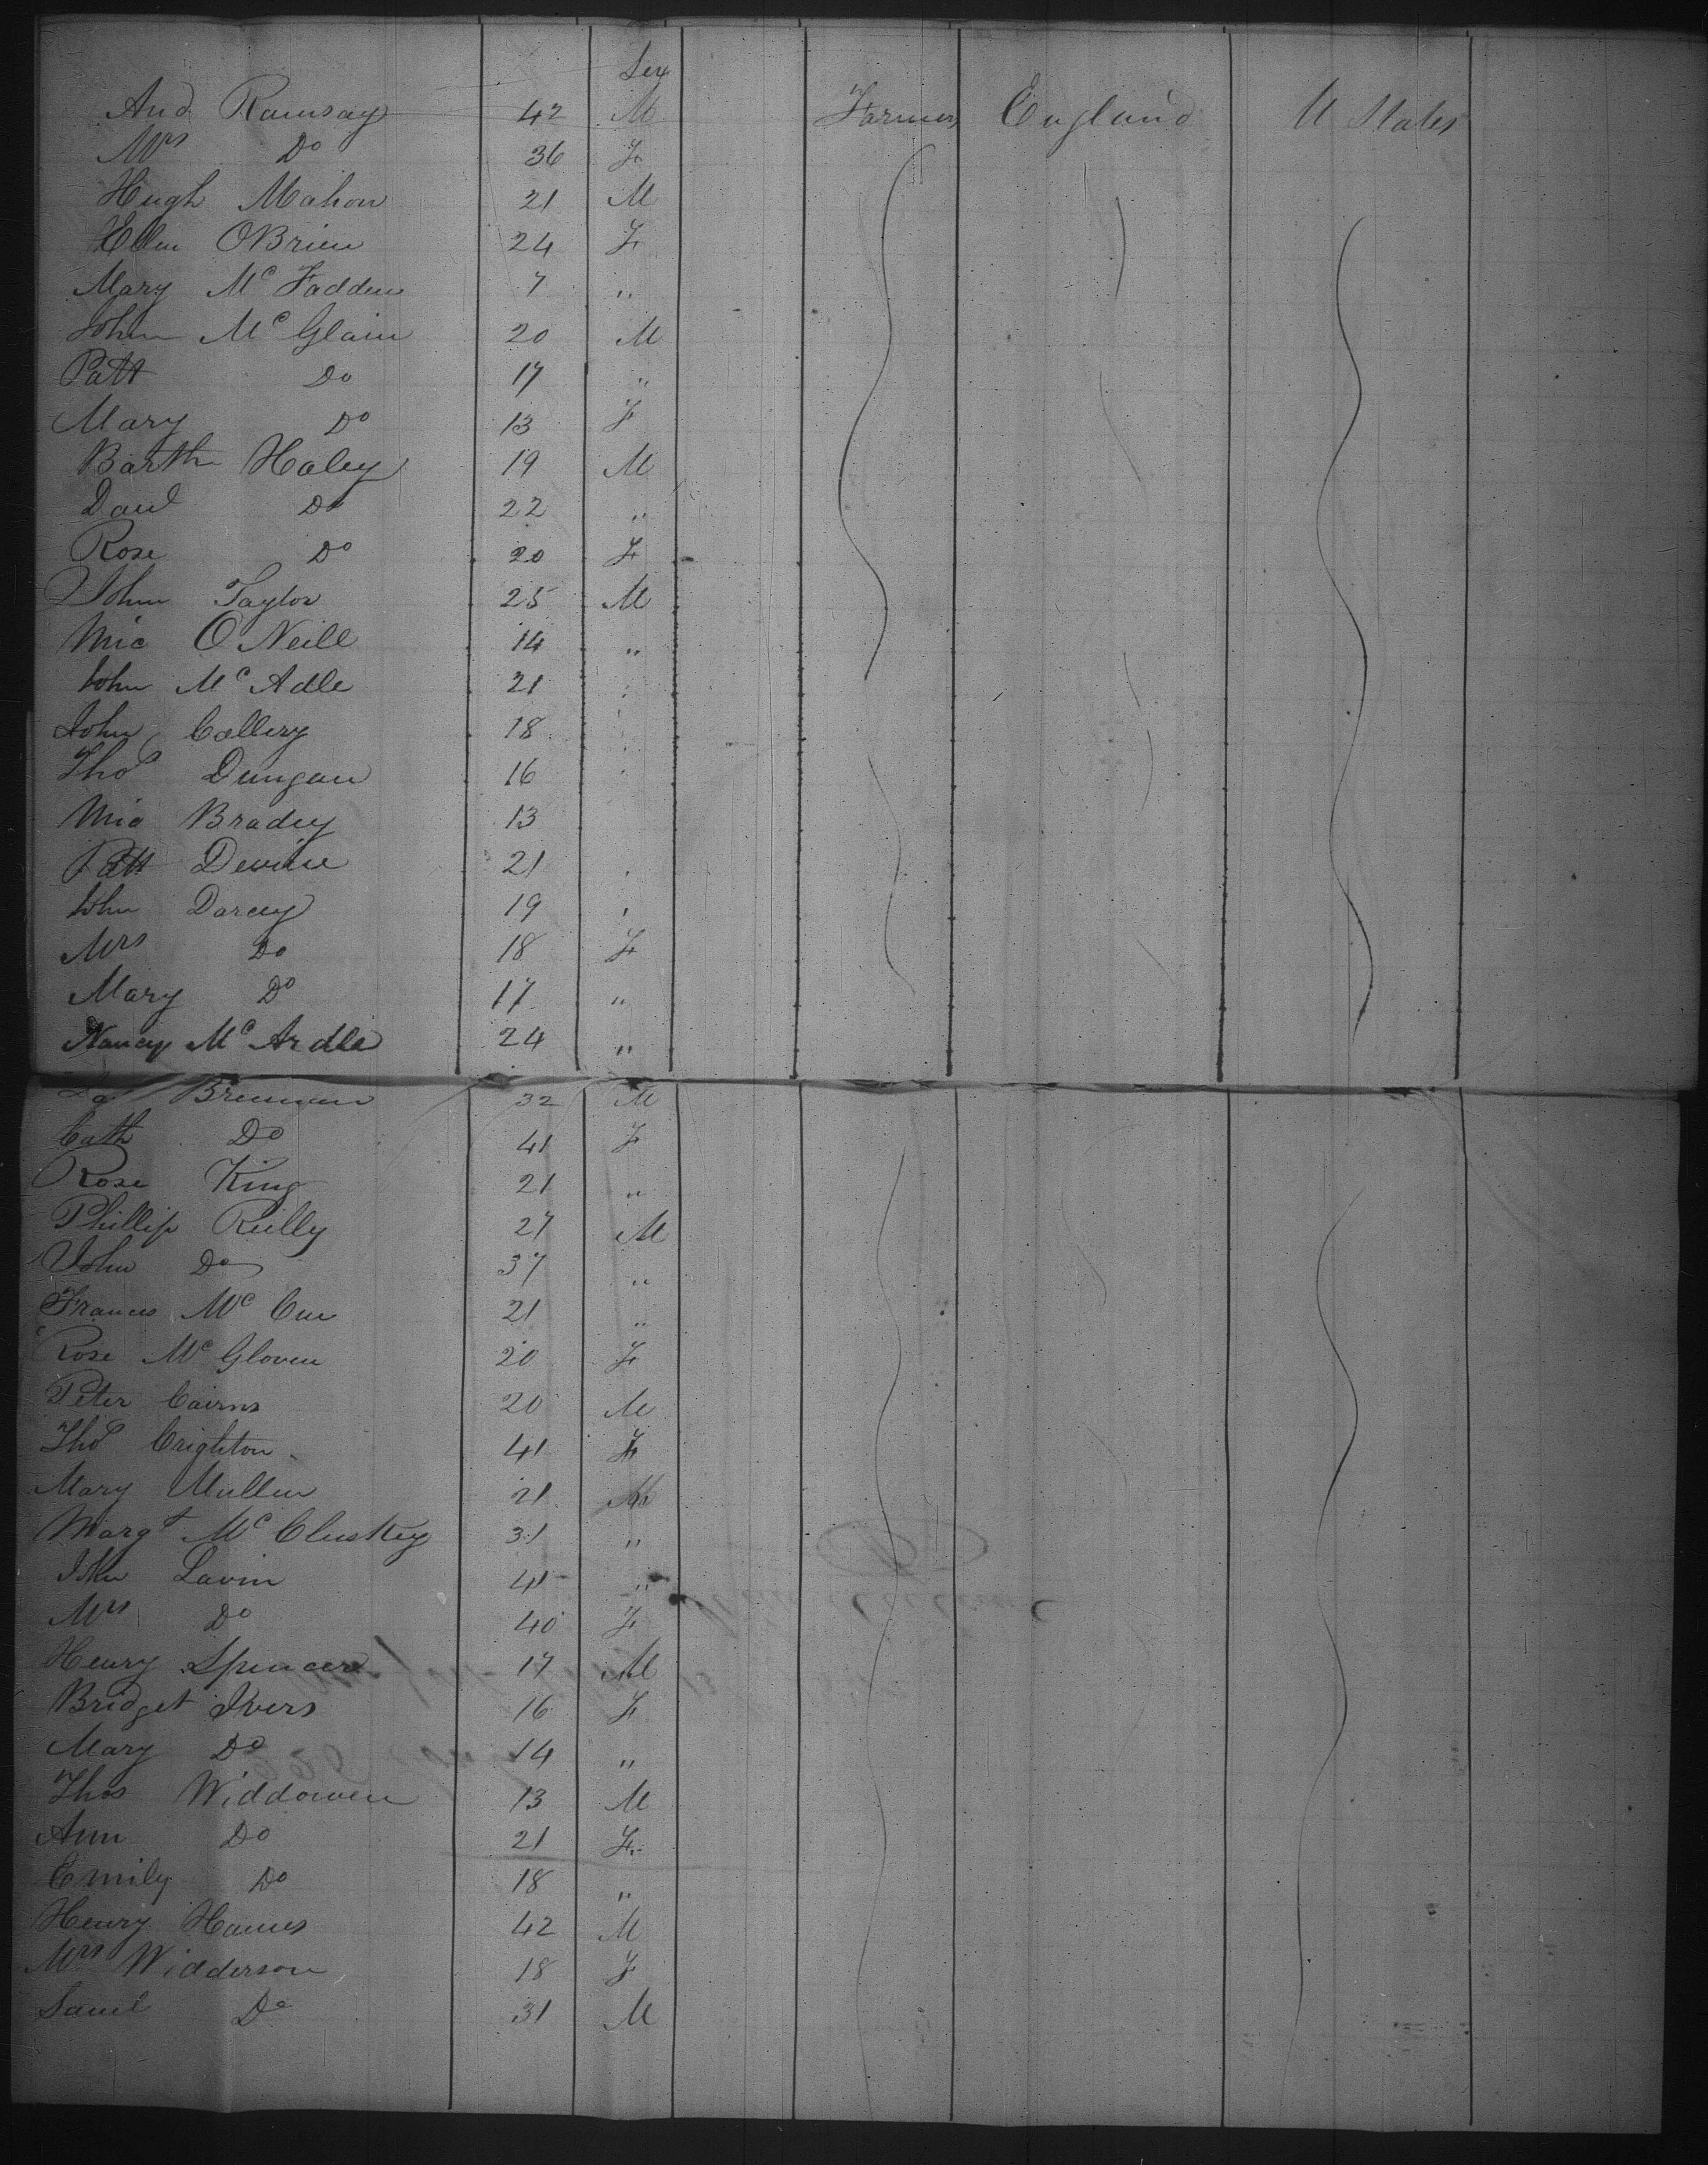 Sex
And Ramsay 42 M Farmers England U States
Mrs Do 36 F
Hugh Mahon 21 M
Ellen OBrien 24 F
Mary Mc Fadden 7 "
John Mc Glain 20 M
Patt Do 17 "
Mary Do 13 F
Barth Haley 19 M
Danl Do 22 "
Rose Do 20 F
John Taylor 25 M
Mic O Neill 14 "
John Mc Adle 21 "
John Callery 18
Thos Dungan 16
Mic Brady 13
Patt Devine 21
John Darcey 19
Mrs Do 18 F
Mary Do 17 "
Nancy Mc Ardle 24 "
Brennan 32 M
Cath Do 41 F
Rose King 21 "
Phillip Reilly 27 M
John Do 37 "
Frances Mc Cue 21 "
Rose Mc Gloven 20 F
Peter Cairns 20 M
Thos Crighton 41 F
Mary Mullen 21 M
Margt Mc Cluskey 31 "
John Lavin 41 "
Mrs Do 40 F
Henry Spencer 17 M
Bridget Ivers 16 F
Mary Do 14 "
Thos Widdowen 13 M
Ann Do 21 F
Emily Do 18 "
Henry Hames 42 M
Mrs Widderson 18 F
Saml Do 31 M